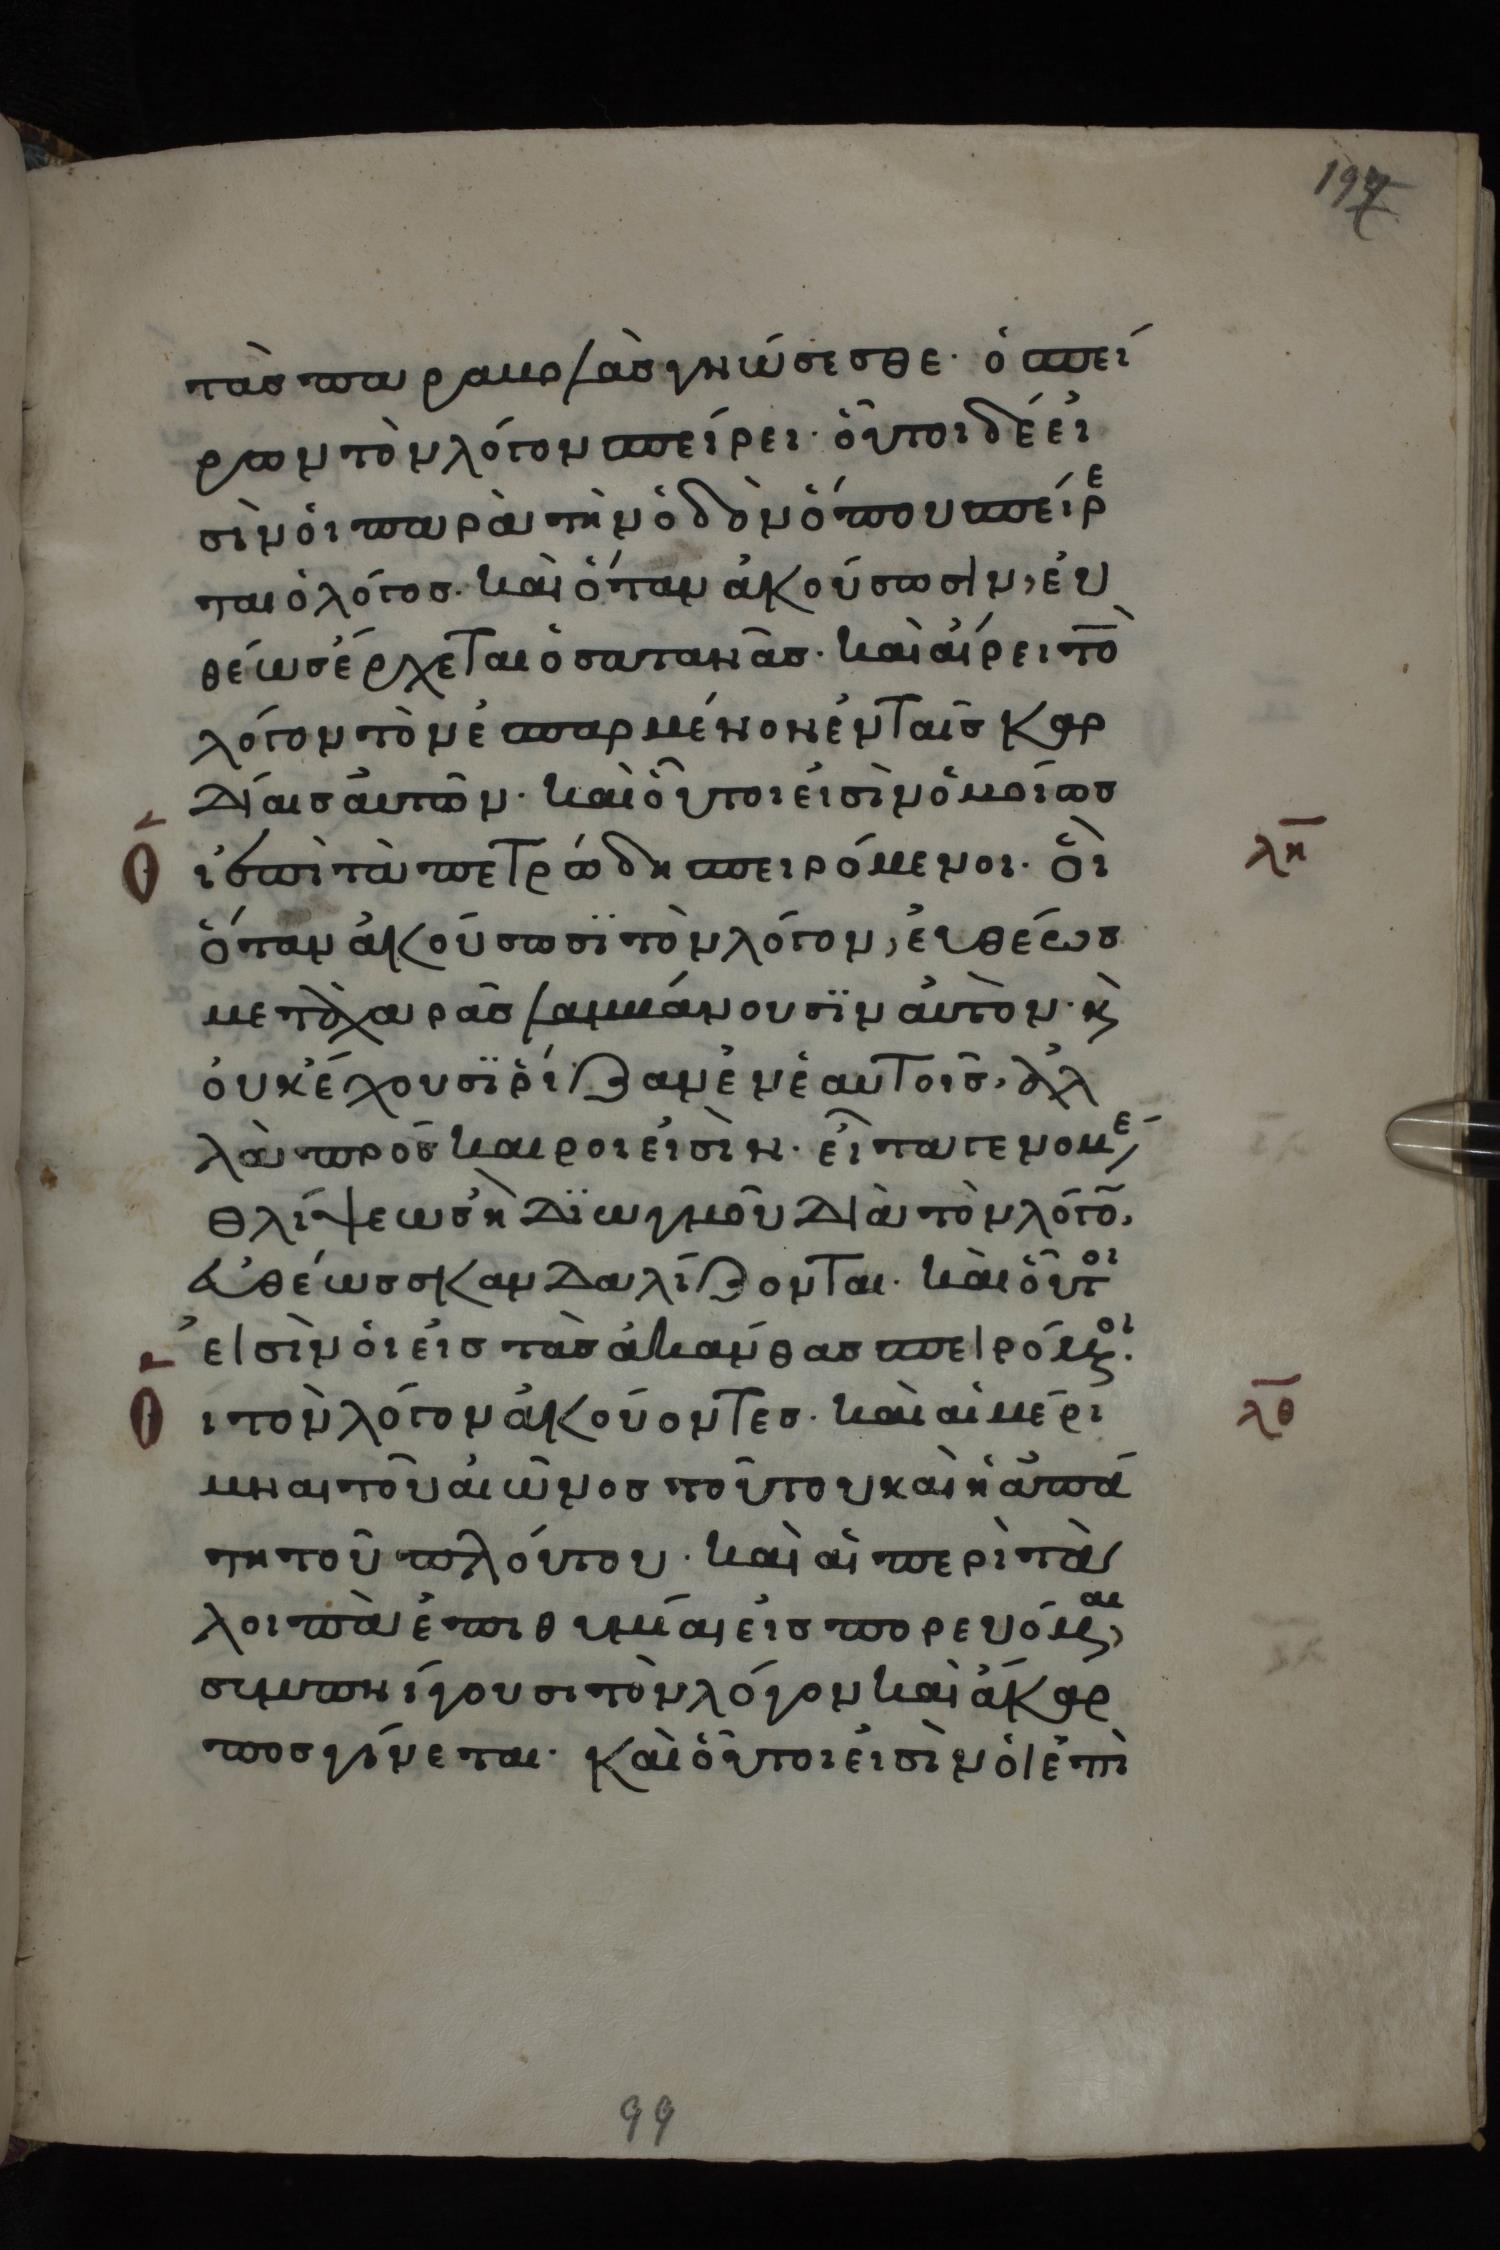 197
τὰς παραβολὰς γνώσεσθε· ὁ σπεί
ρων τὸν λόγον σπείρει· οὗτοι δέ εἰ
σὶν οἱ παρὰ τὴν ὁδὸν ὅπου σπείρε
ται ὁ λόγος· καὶ ὅταν ἀκούσωσιν, εὐ
θέως ἔρχεται ὁ σατανᾶς· καὶ αἴρει τὸ
λόγον τὸν ἐσπαρμένον ἐν ταῖς καρ
δίαις αὐτῶν· καὶ οὗτοι εἰσὶν ὁμοίως
οἱ ἐπὶ τὰ πετρώδη σπειρόμενοι· οἳ λη
ὅταν ἀκούσωσϊ τὸν λόγον, εὐθέως
μετὰ χαρᾶς λαμβάνουσϊν αὐτὸν· κ̀
οὐκ ἔχουσϊ ῥίζαν ἐν ἑαυτοῖς, ἀλ
λὰ πρόσκαιροι εἰσὶν· εἶτα γενομέ
θλίψεως ἢ δϊωγμοῦ διὰ τὸν λόγο̄,
εὐθέως σκανδαλίζονται· καὶ οὗτοι
εἰσὶν οἱ εἰς τὰς ἀκάνθας σπειρόμοι·
οἱ τὸν λόγον ἀκούοντες· καὶ αἱ μέρι λθ
μναι τοῦ αἰῶνος τούτου καὶ ἡ ἀπά
τη τοῦ πλούτου· καὶ αἱ περὶ τὰ
λοιπὰ ἐπιθυμίαι εἰσπορευόμαι,
συμπνίγουσι τὸν λόγον καὶ ἄκαρ
πος γίνεται· καὶ οὗτοι εἰσὶν οἱ ἐπὶ
99